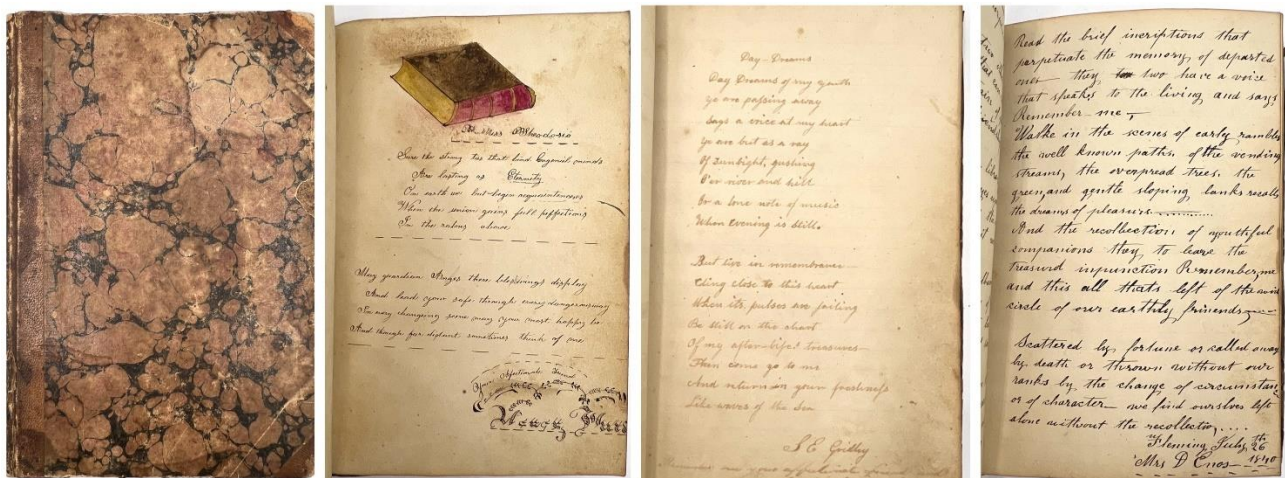 To Miss
Sure the strong ties that bind Congenial minds
Are lasting as Eternity
On earth we but begin acquaintences
When the union gains full perfections
In the realms above
May guardian Anges there blessings display
And lead your safe through every danger
In every changing scene may you most happy be
And though far distant sometimes think of me
Your Affectionate friend
Day-Dreams
Day Dreams of my youth
Ye are passing away
Says a voice at my heart
Ye are but as a ray
Of sunlight, gushing
O'er river and hill
Or a lone note of music
When evening is still.
But live in remembrance
Cling close to this heart
When its pulses are failing
Be still on the chart
Of my after-life's treasures—
Then come go to me
And return in your freshness
Like waves of the Sea
S E Gridley
Read the brief incriptions that
perpetuate the memory of departed
ones they two have a voice
that speaks to the living and says
Remember me,
Walke in the scenes of early rambles
the well known paths of the vending
streams, the overpread trees, the
green, and gentle sloping banks recalls
the dreams of pleasure ..........
And the recollection of youthful
companions they to leave the
treasured injunction Remember me
and this all thats left of the wide
circle of our earthly friends
Scattered by fortune or called away
by death or thrown without our
ranks by the change of circumstan
or of character— we find ourslves left
alone without the recollection....
Fleming July 26th
1840
Mrs D Enos